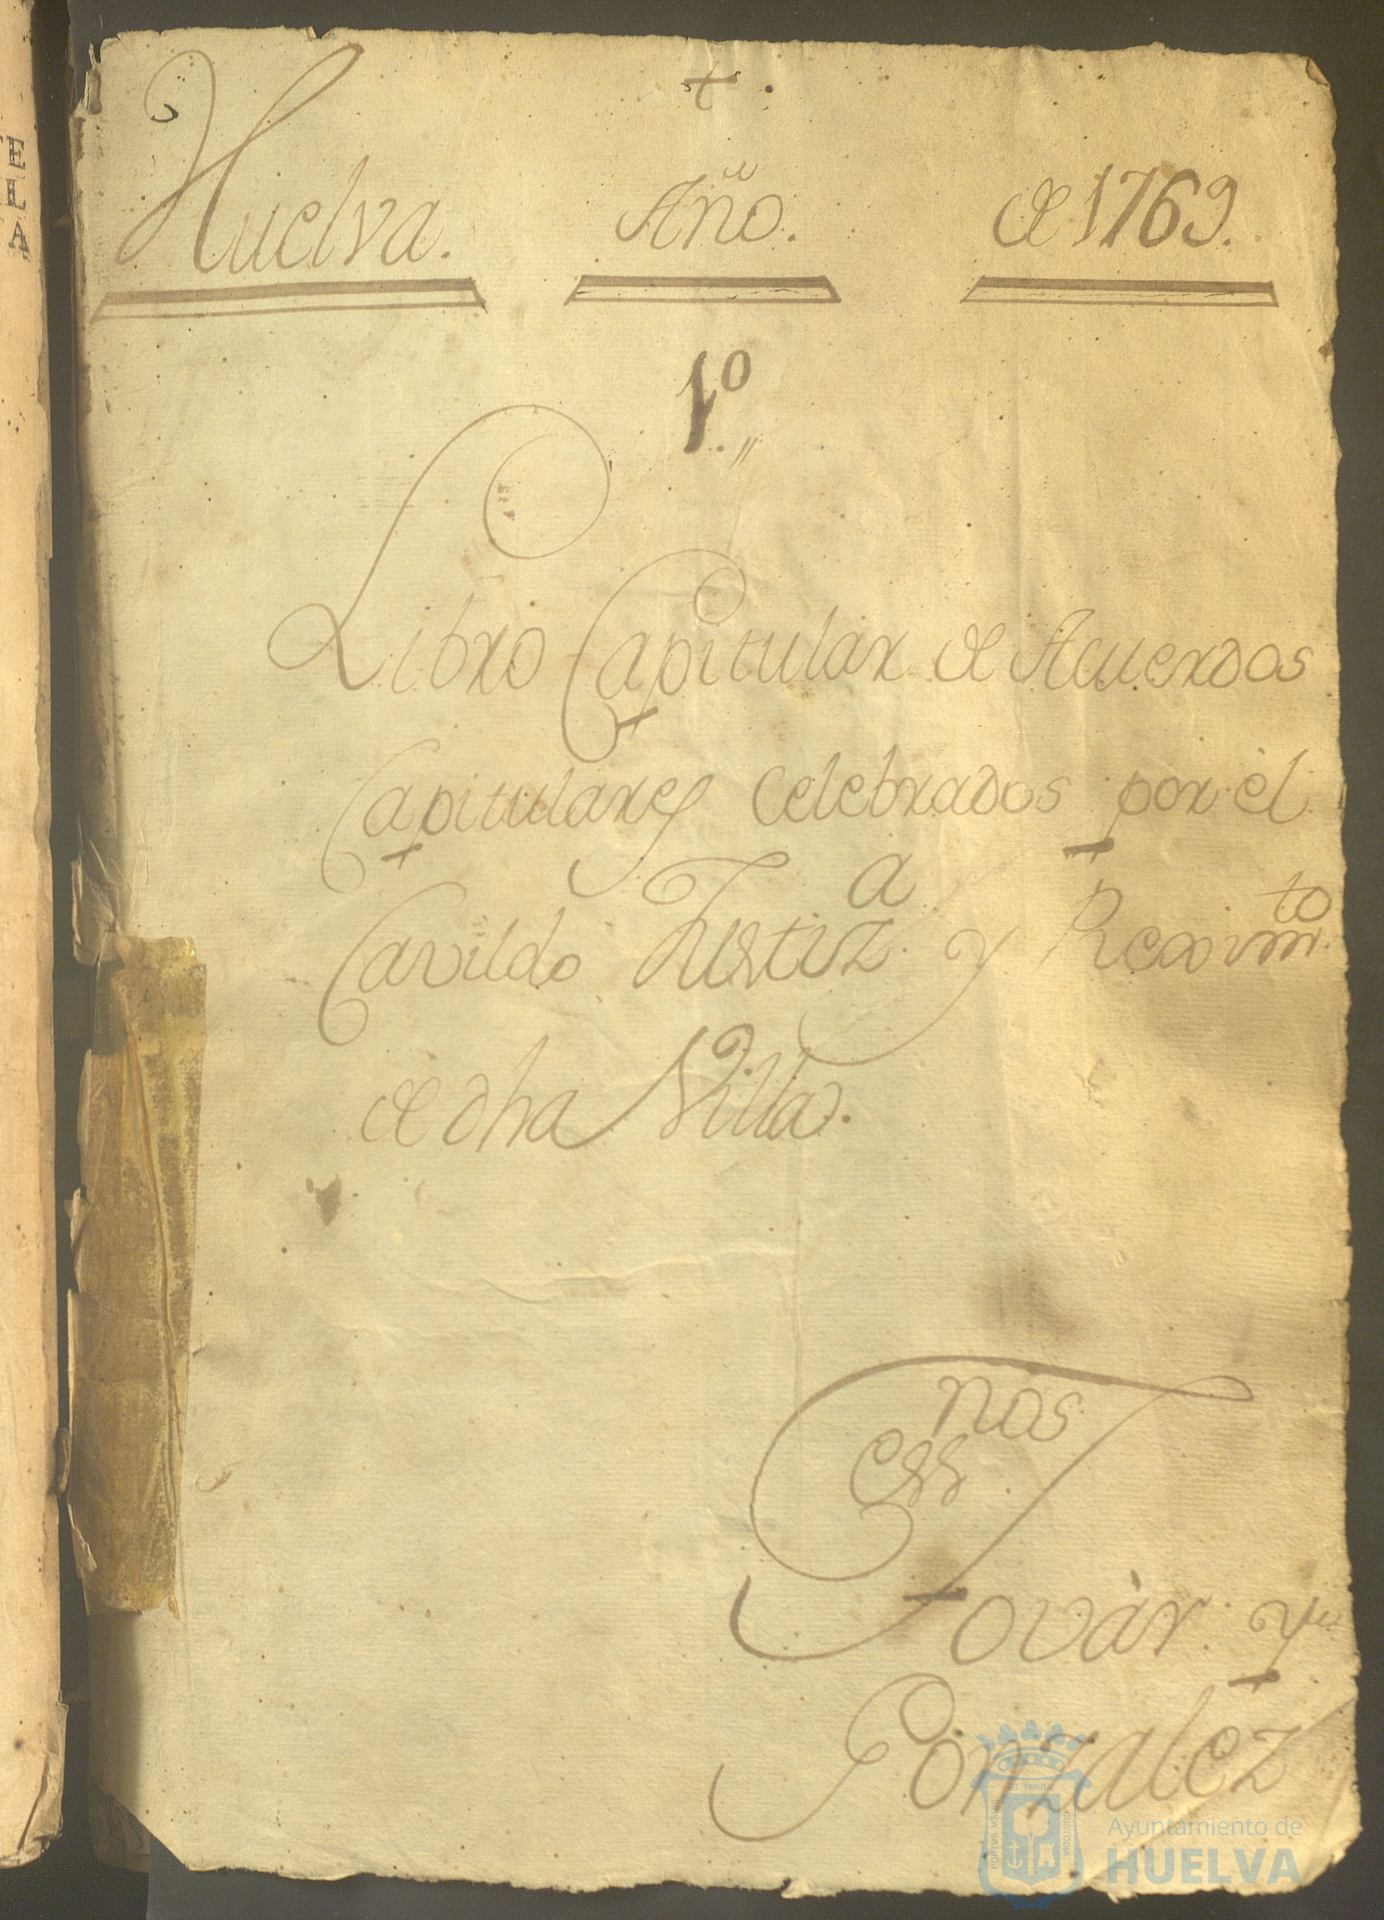 +
Huelva. Año. de 1769.
1º
Libro Capitular de Acuerdos
Capitulares celebrados por el
Cavildo Justiz.a y Reximto
de dha Villa.
Essnos
Tovàr y
Gonzalez
Ayuntamiento de
HUELVA
TE
L
A